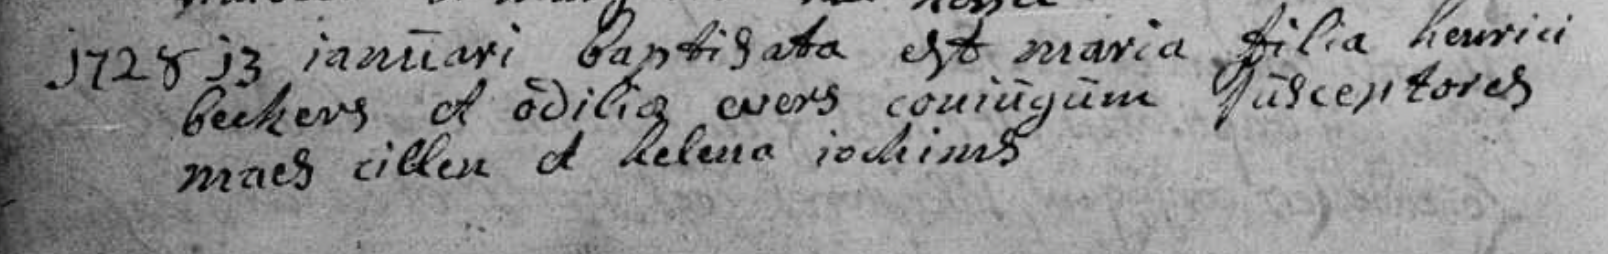 1728 13 ianűari baptisata est maria filia henrici
beckers et odiliæ evers coniűgűm sűsceptores
maes cillen et helena iochims